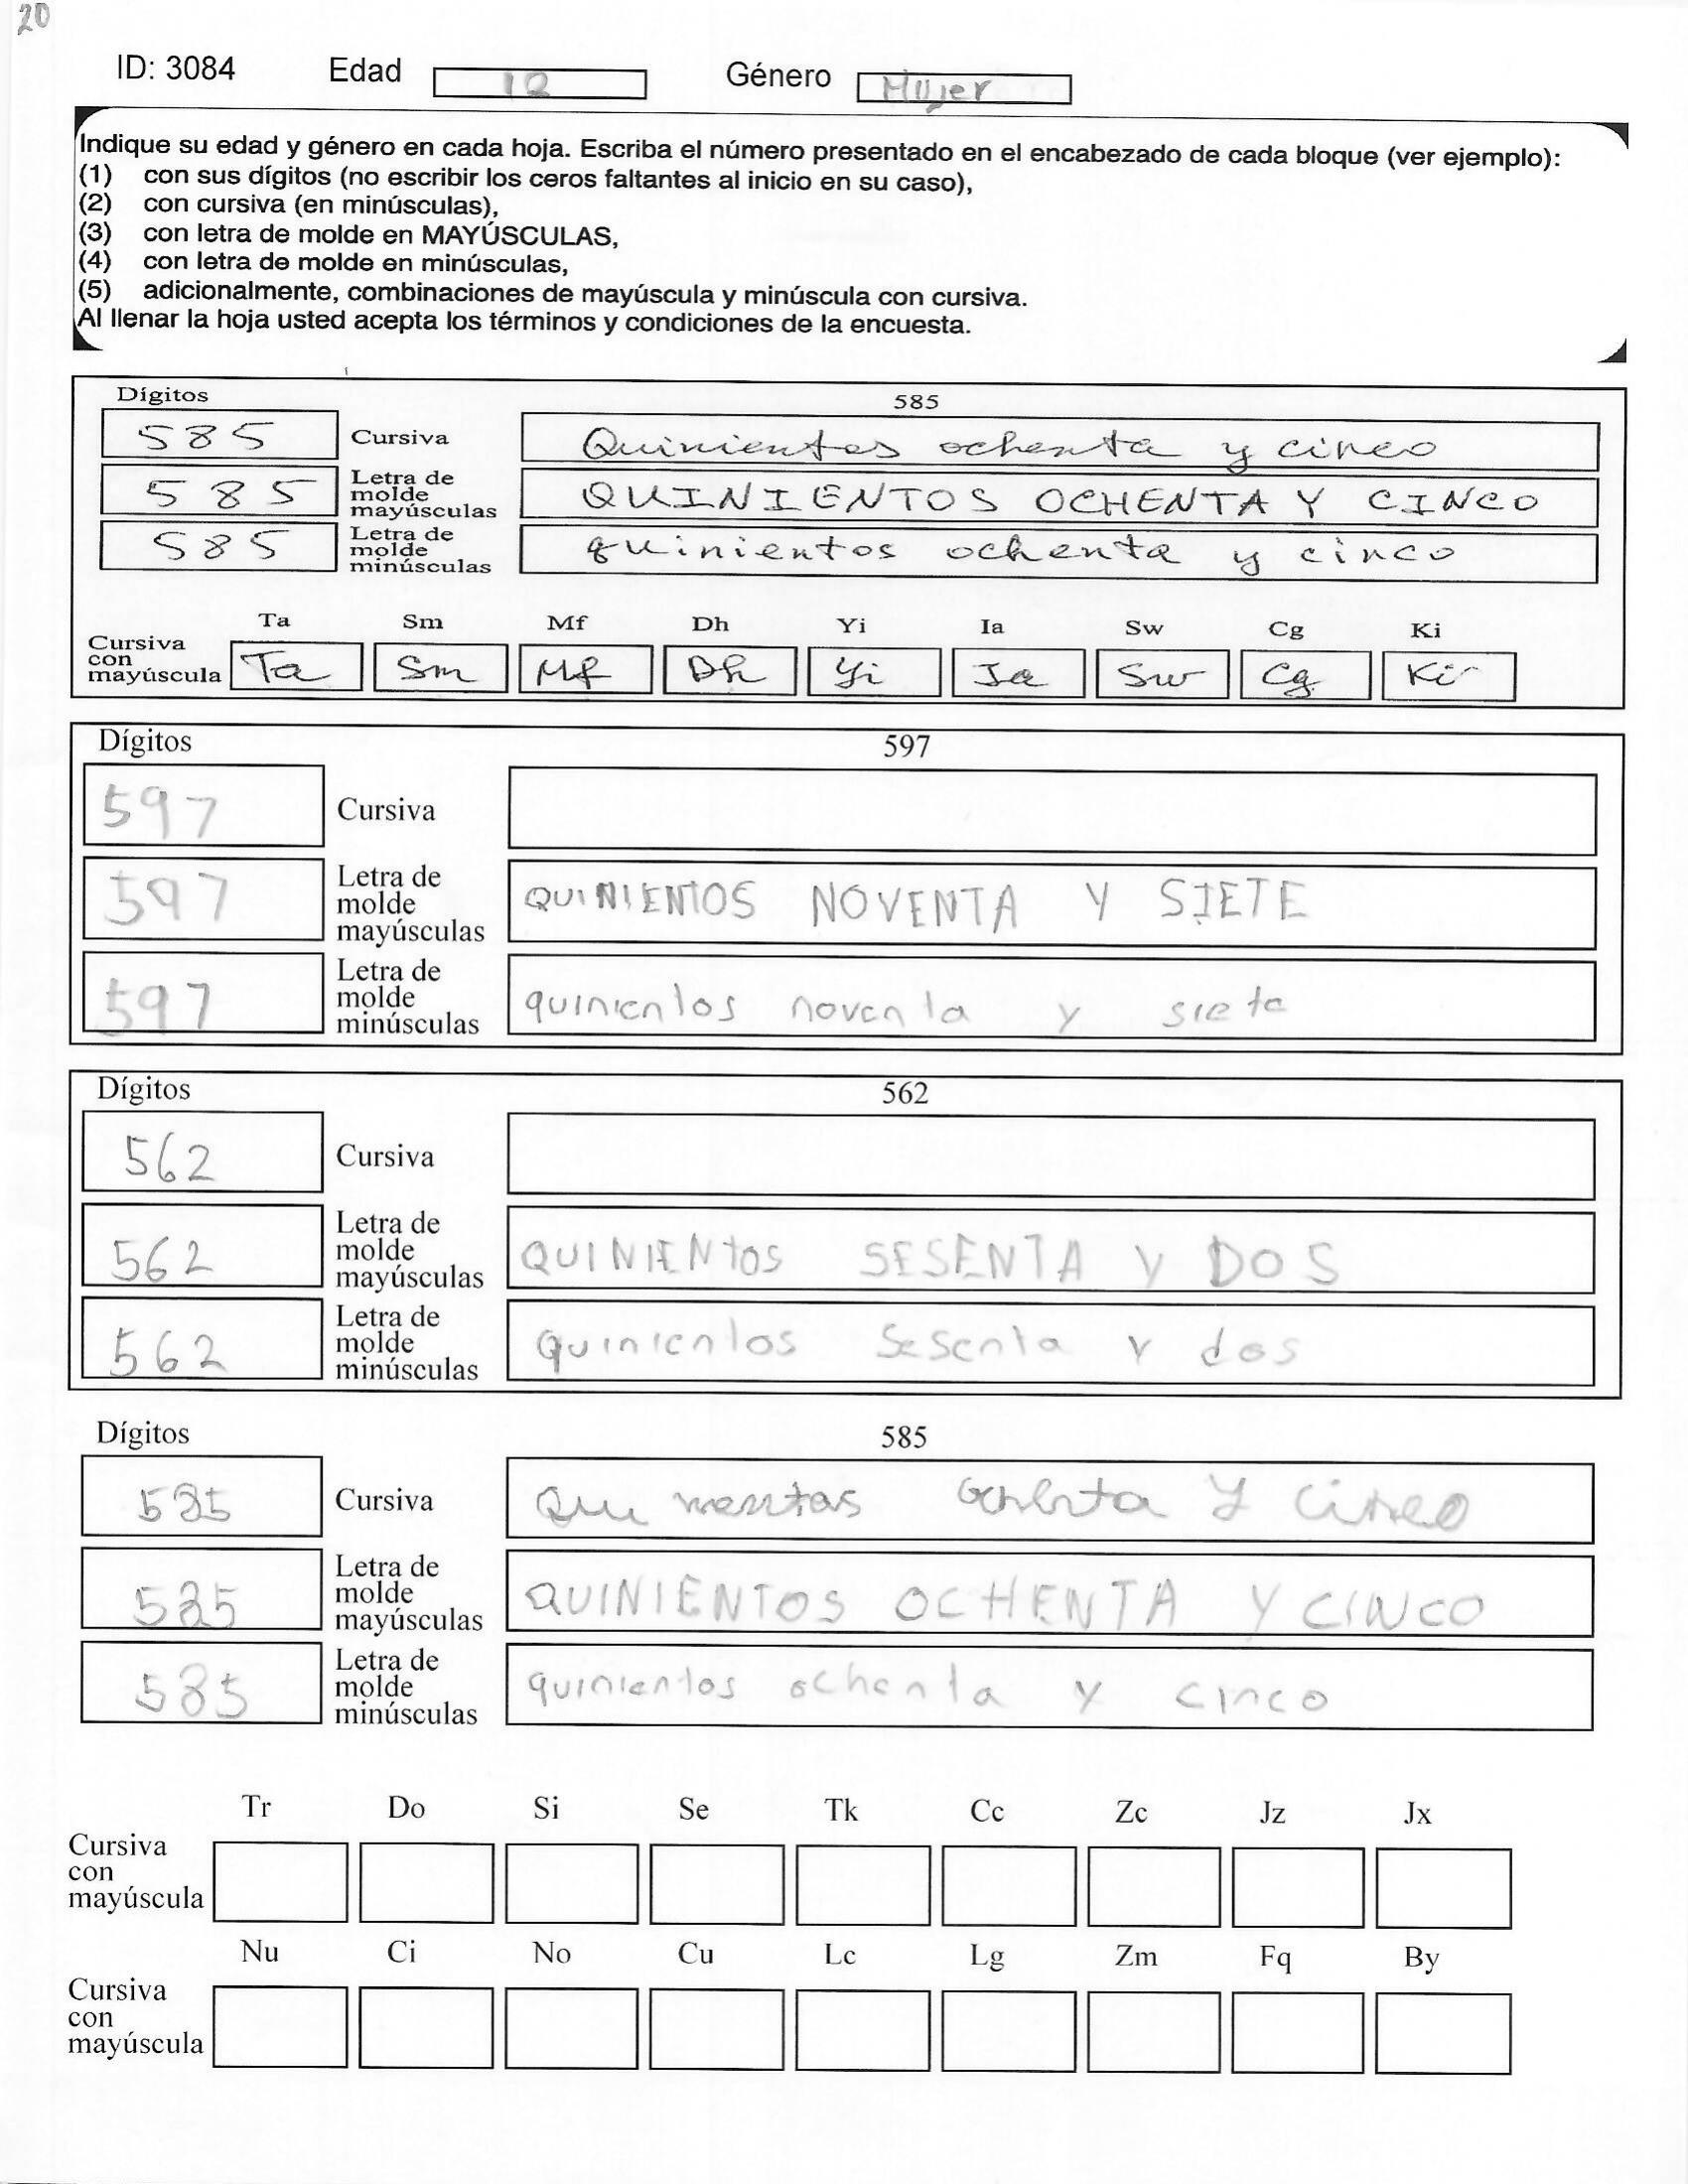 20
ID: 3084 Edad 12 Género Mujer
Indique su edad y género en cada hoja. Escriba el número presentado en el encabezado de cada bloque (ver ejemplo):
(1) con sus dígitos (no escribir los ceros faltantes al inicio en su caso),
(2) con cursiva (en minúsculas),
(3) con letra de molde en MAYÚSCULAS,
(4) con letra de molde en minúsculas,
(5) adicionalmente, combinaciones de mayúscula y minúscula con cursiva.
Al llenar la hoja usted acepta los términos y condiciones de la encuesta.
Dígitos 585
585 Cursiva Quinientos ochenta y cinco
585 Letra de molde mayúsculas QUINIENTOS OCHENTA Y CINCO
585 Letra de molde minúsculas quinientos ochenta y cinco
Ta Sm Mf Dh Yi Ia Sw Cg Ki
Cursiva con mayúscula Ta Sm Mf Dh Yi Ia Sw Cg Ki
Dígitos 597
597 Cursiva
597 Letra de molde mayúsculas QUINIENTOS NOVENTA Y SIETE
597 Letra de molde minúsculas quinientos noventa y siete
Dígitos 562
562 Cursiva
562 Letra de molde mayúsculas QUINIENtos SESENTA Y DOS
562 Letra de molde minúsculas Quinientos Sesenta y dos
Dígitos 585
585 Cursiva y cinco
585 Letra de molde mayúsculas QUINIENTOS OCHENTA Y CINCO
585 Letra de molde minúsculas quinientos ochenta y cinco
Tr Do Si Se Tk Cc Zc Jz Jx
Cursiva con mayúscula
Nu Ci No Cu Lc Lg Zm Fq By
Cursiva con mayúscula